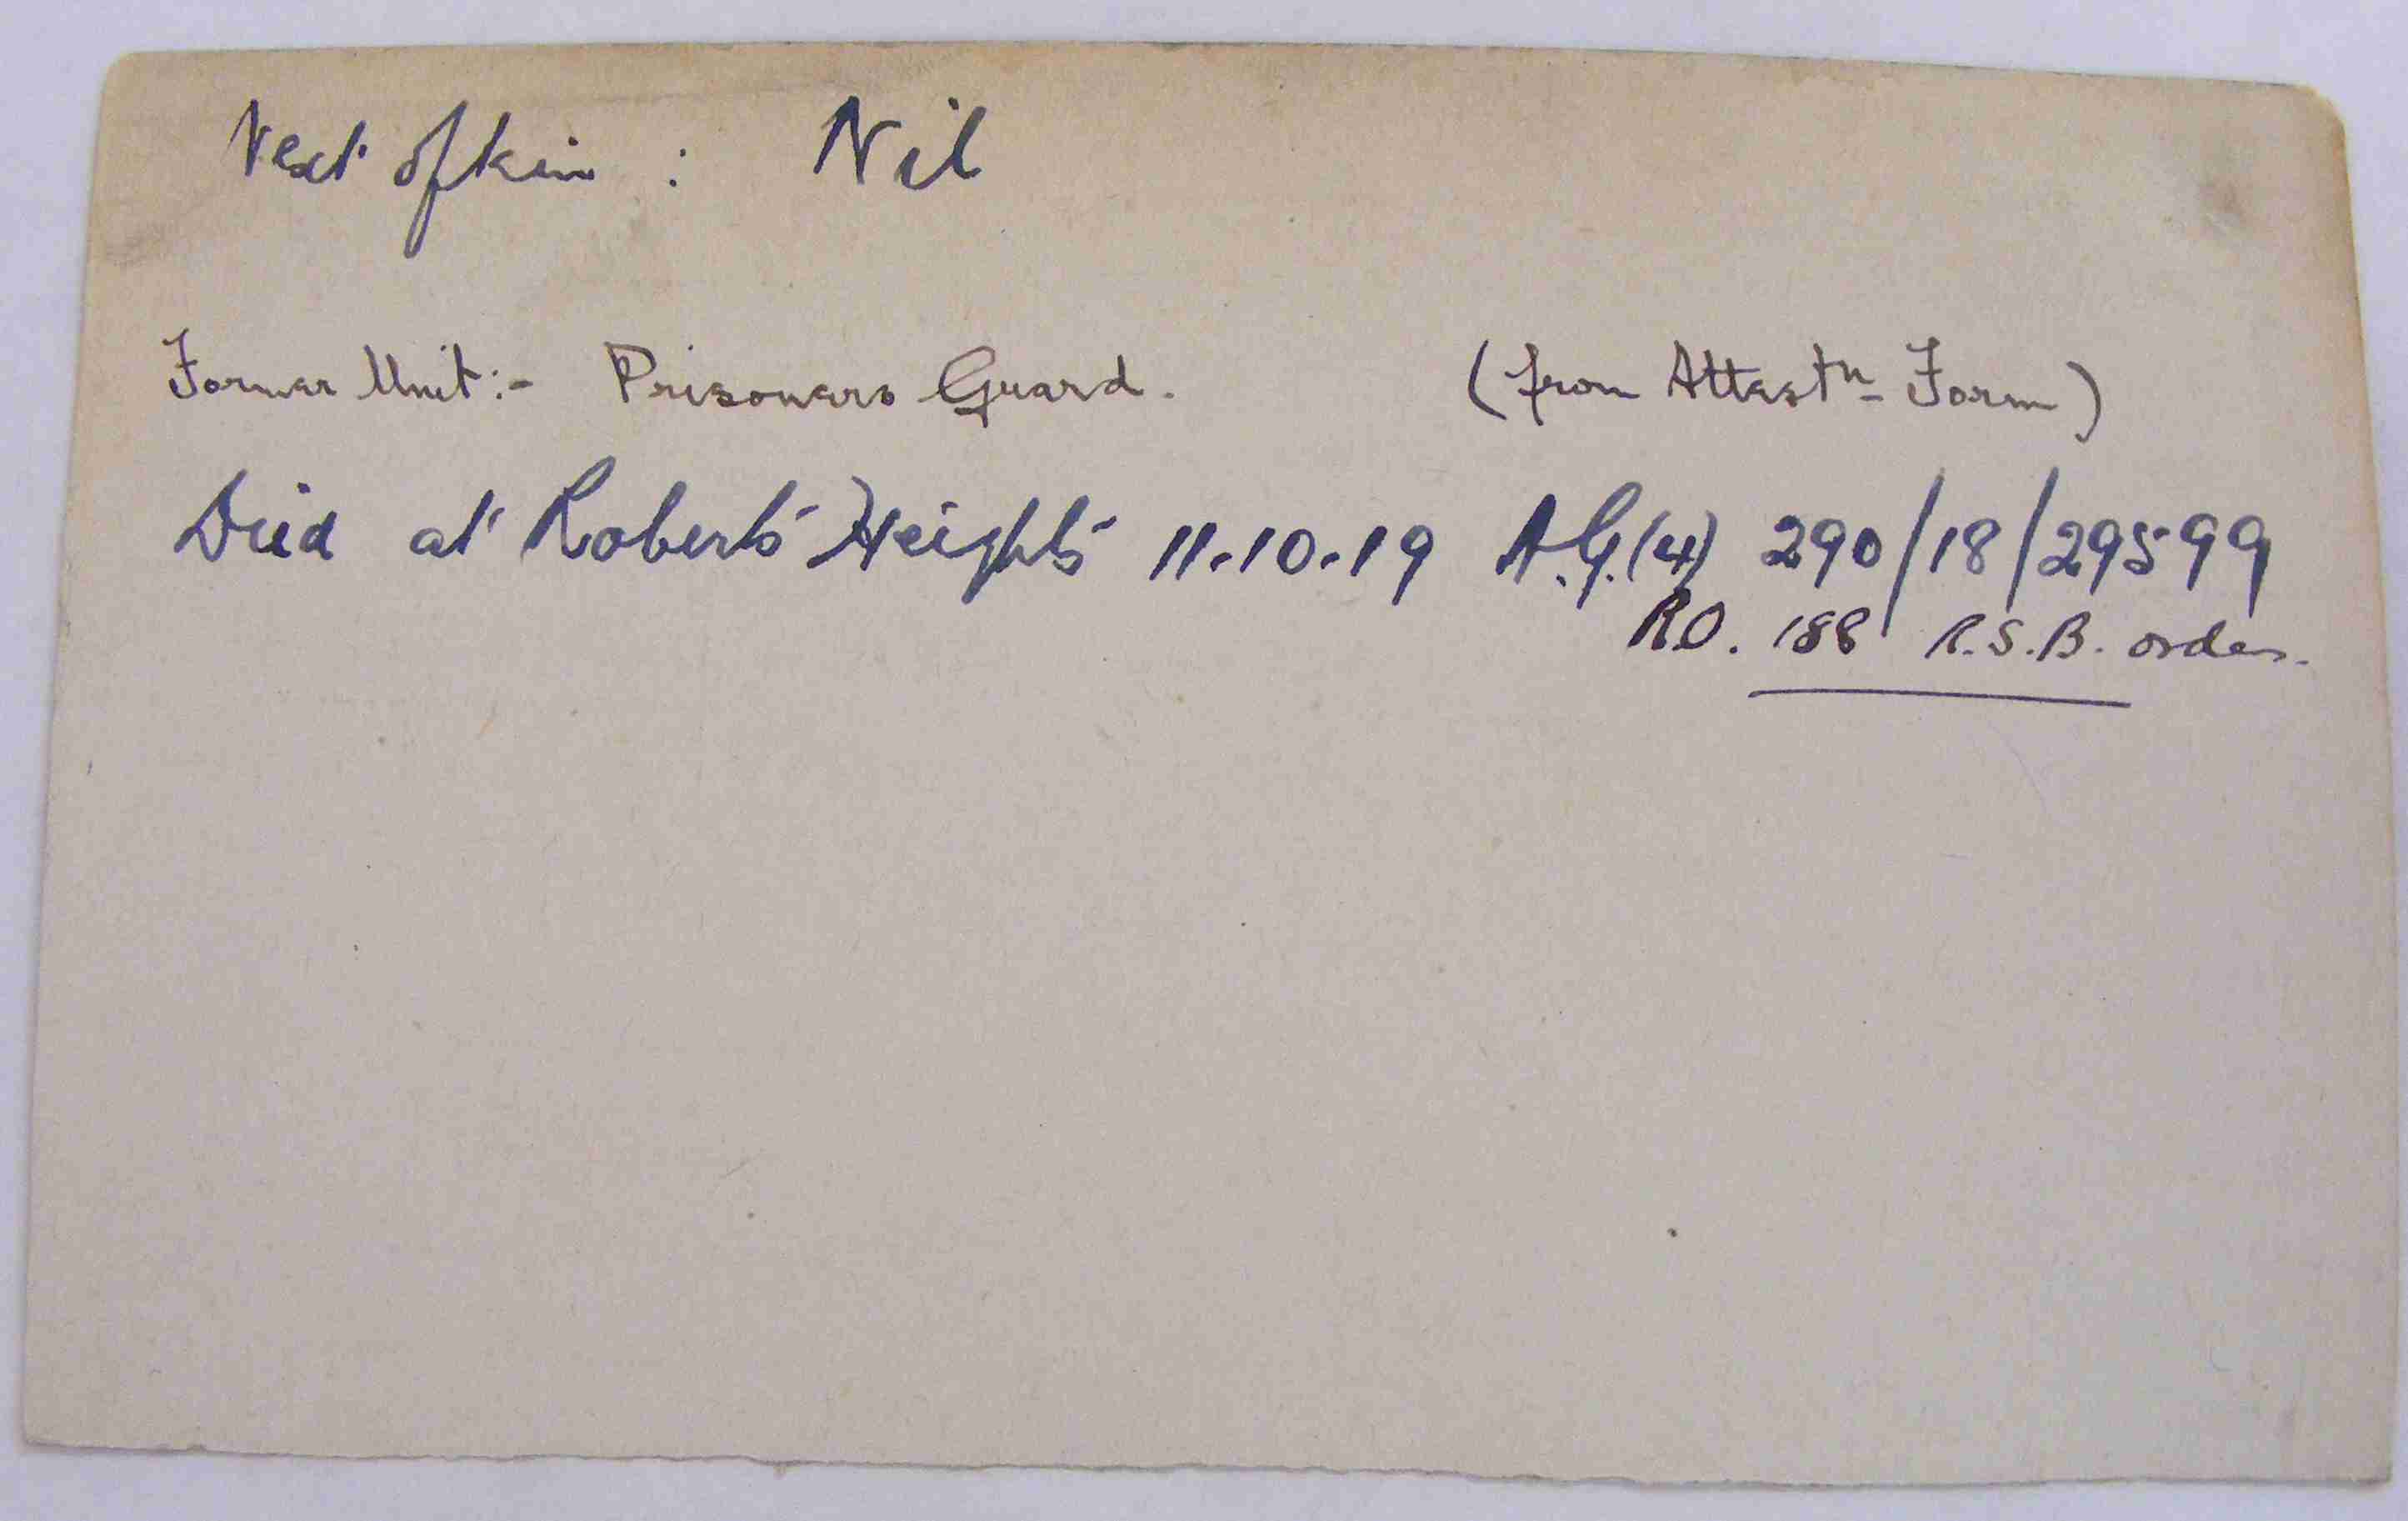 Next of kin : Nil
Former Unit:- Prisoners Guard. (from Attestn Form)
Died at Roberts Heights 11.10.19 A.G.(4) 290/18/29599
RO. 188 R.S.B. orders.